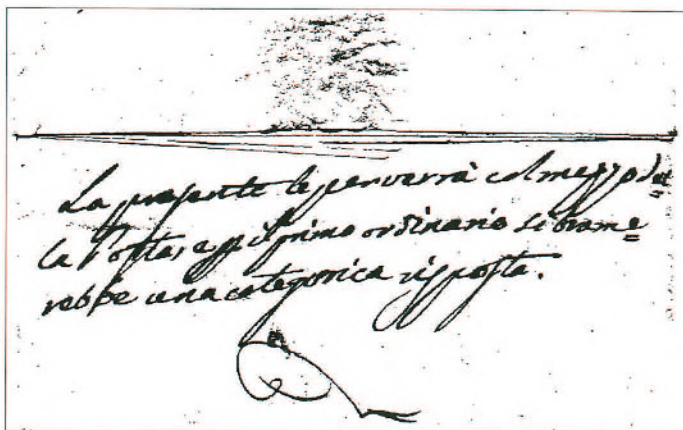 La presente le perverrà col mezzo del=
la Posta, e p il primo ordinario si brame=
rebbe una categorica risposta.